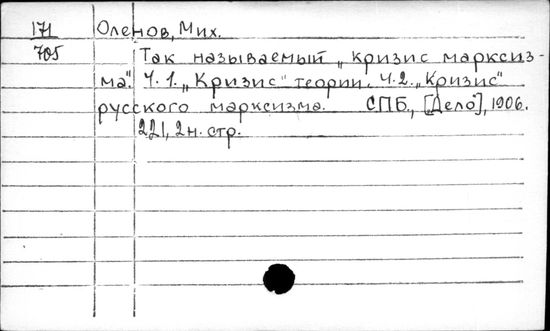 171 Оленов, Мих.
705 Так называемый „кризис марксиз-
ма". Ч. 1. „Кризис" теории. Ч. 2. „Кризис"
русского марксизма. СПБ., [Дело], 1906.
221, 2 н. стр.